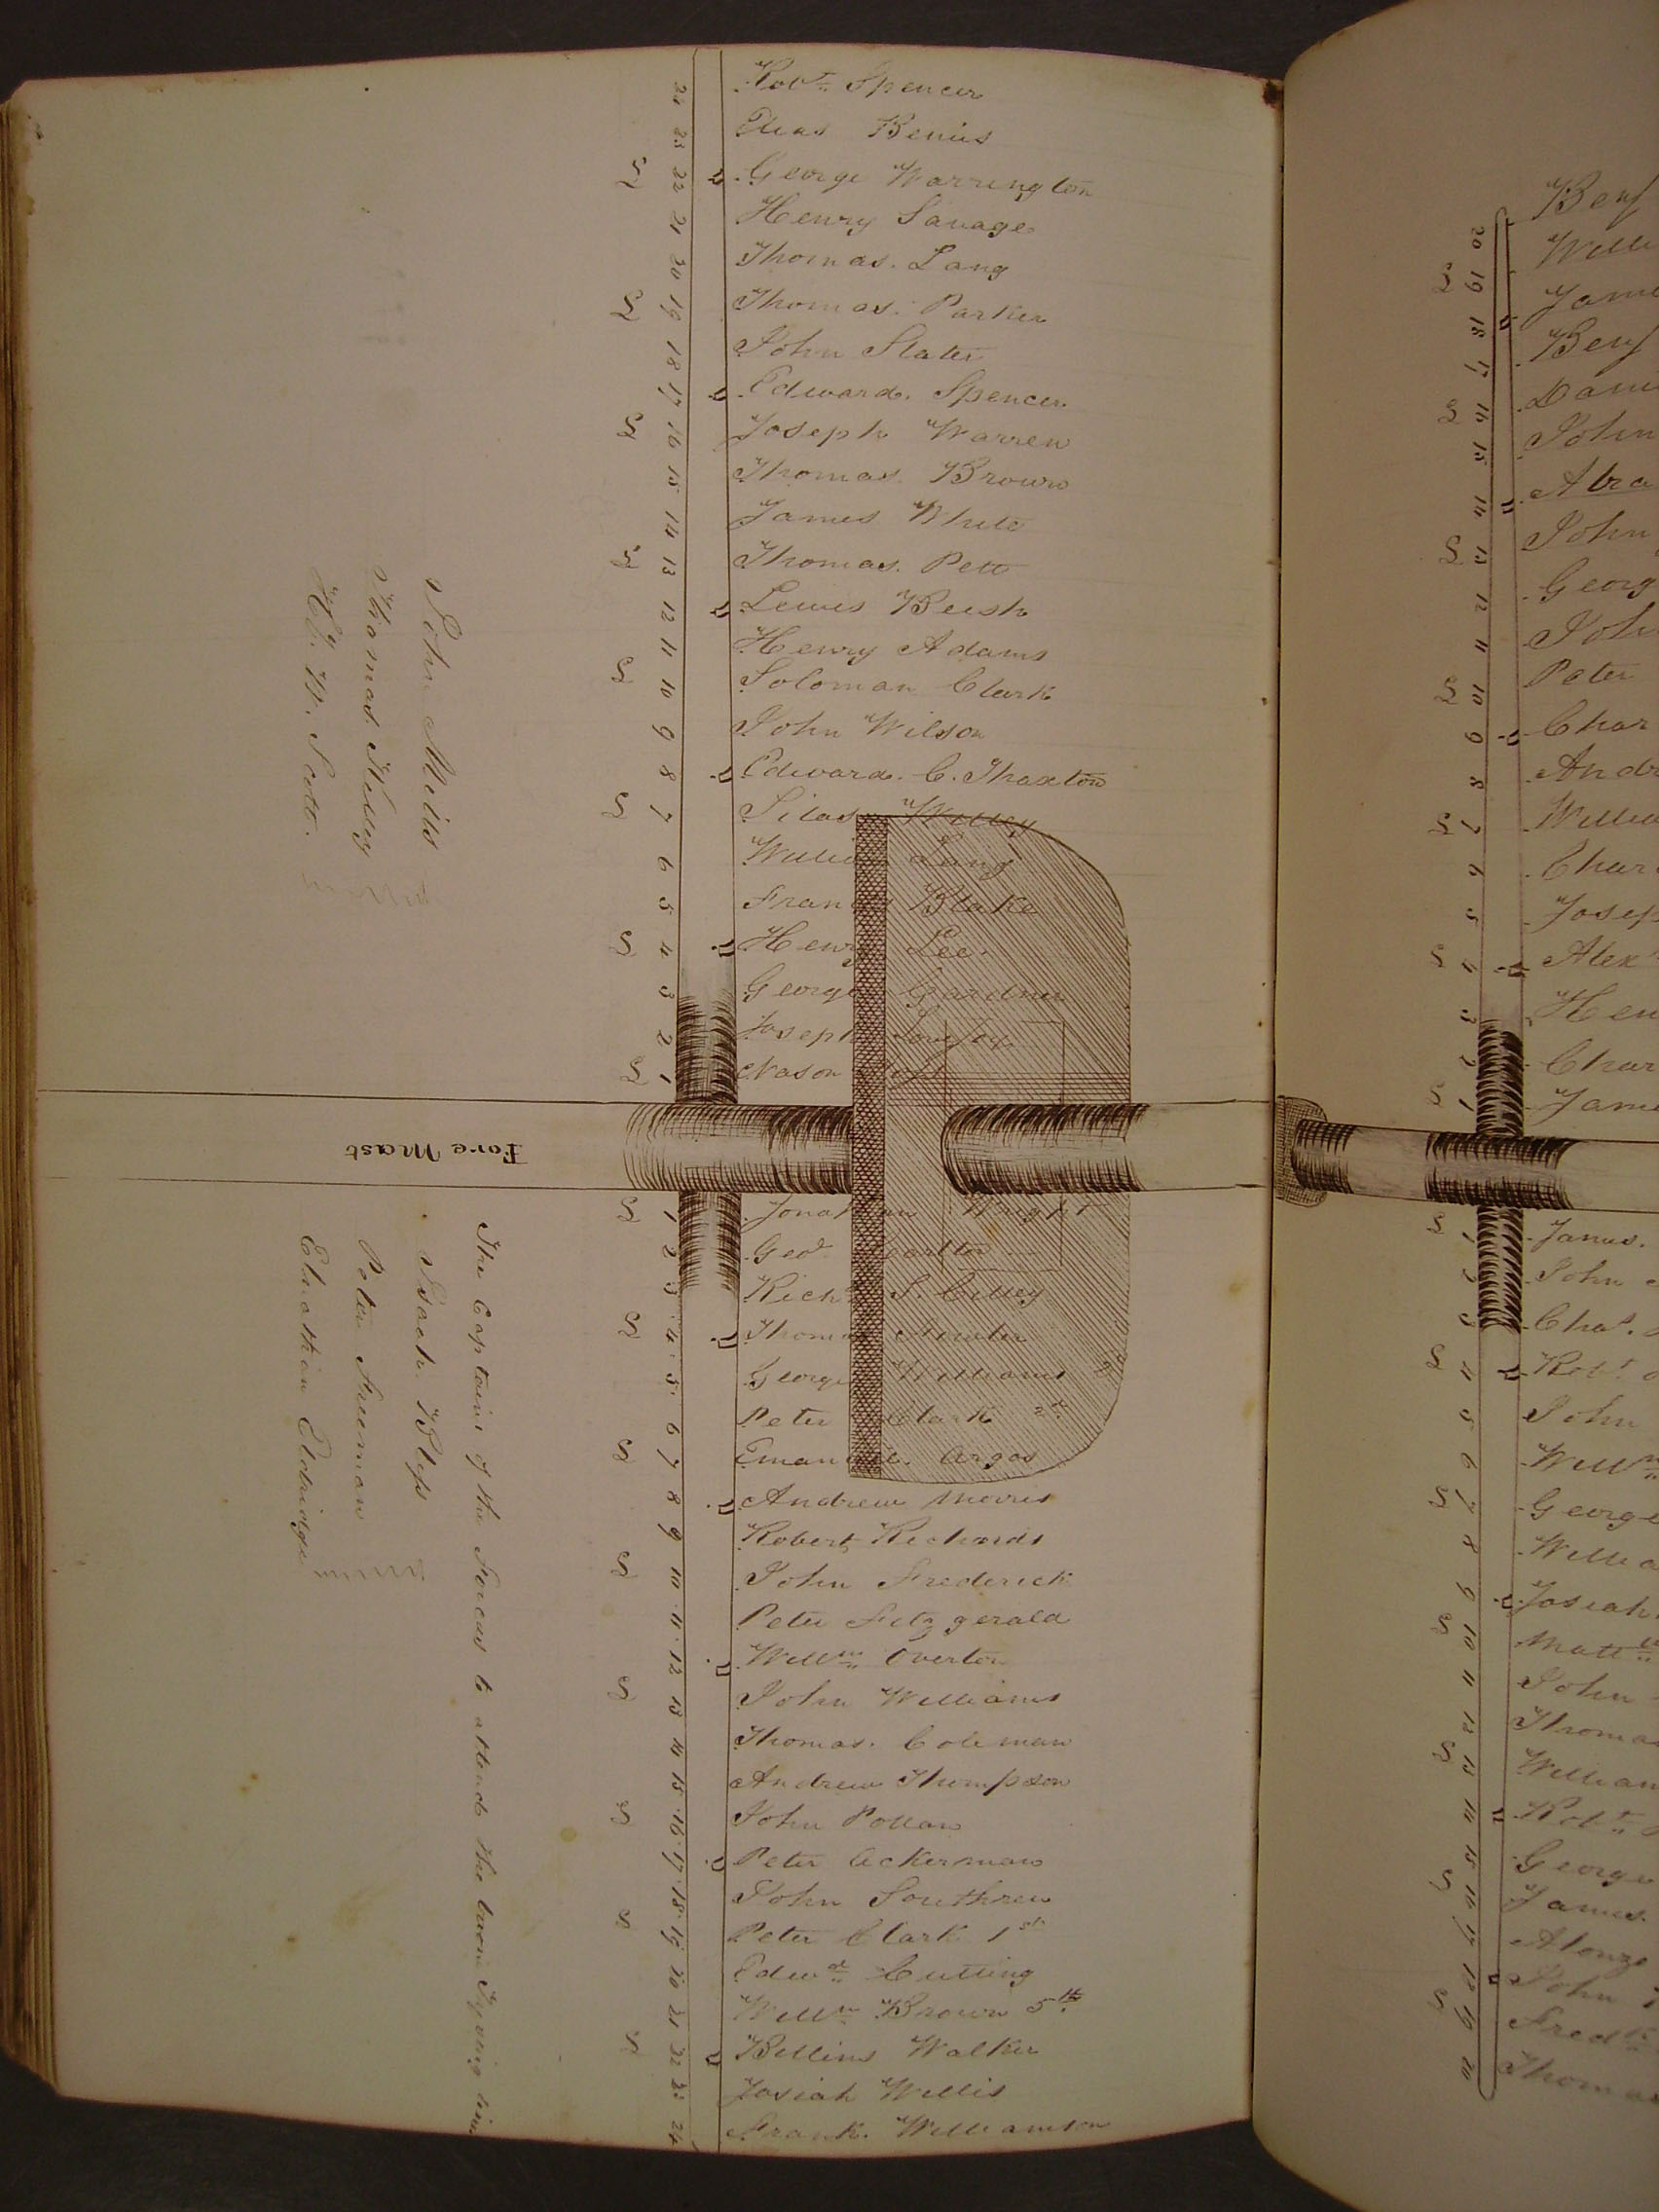 24 Robt. Spencer
23 Elias Bemis
S 22 George Warrington
21 Henry Savage
20 Thomas. Lang
S 19 Thomas. Parker
18 John Slater
17 Edward. Spencer
S 16 Joseph Warren
15 Thomas. Brown
14 James White
S 13 Thomas. Pett
12 Lewis
11 Henry Adams
S 10 Soloman Clark
9 John Wilson
8 Edward. C. Thaxton
S 7 Silas Willey
6 William Lang
5 Francis Blake
S 4 Henry Lee.
3 George Gardner
2 Joseph Lovejoy
S 1 Nason
John Mills
Thomas. Kelley
W. Scott.
Fore Mast
S 1 Jonathan Wright
2 Geo. Carlton
3 Richd. S. Cilley
S 4 Thomas
5 George Williams 2d
6 Peter Clark 2d
S 7 Emanuel. Argos
8 Andrew Morris
9 Robert Richards
S 10 John Frederick
11 Peter Fitzgerald
12 Willm. Overton
S 13 John Williams
14 Thomas. Coleman
15 Andrew Thompson
S 16 John
17 Peter Ackerman
18 John Southren
S 19 Peter Clark 1st
20 Edwd. Cutting
21 Willm. Brown 5th
S 22 Billins Walker
23 Josiah Willis
24 Frank. Williamson
The Captains of the Forcas to attend the boom
Isach. Bless
Peter Freeman
Elnathan Eldridge
20 Benj
S 19 Willi
18 Jame
17 Benj
S 16
15 John
14 Abra
S 13 John
12 Georg
11 John
S 10 Peter
9 Char
8 Andr
S 7 Willia
6 Char
5 Josep
S 4 Alex
3 Hen
2 Char
S 1 Jame
S 1 James.
2 John
3 Chas.
S 4 Robt.
5 John
6 Willm
S 7 George
8 Willia
9 Josiah
S 10 Matt
11 John
12 Thoma
S 13 William
14 Robt.
15 George
S 16 James.
17 Alonzo
18 John
S 19 Fredk
20 Thomas